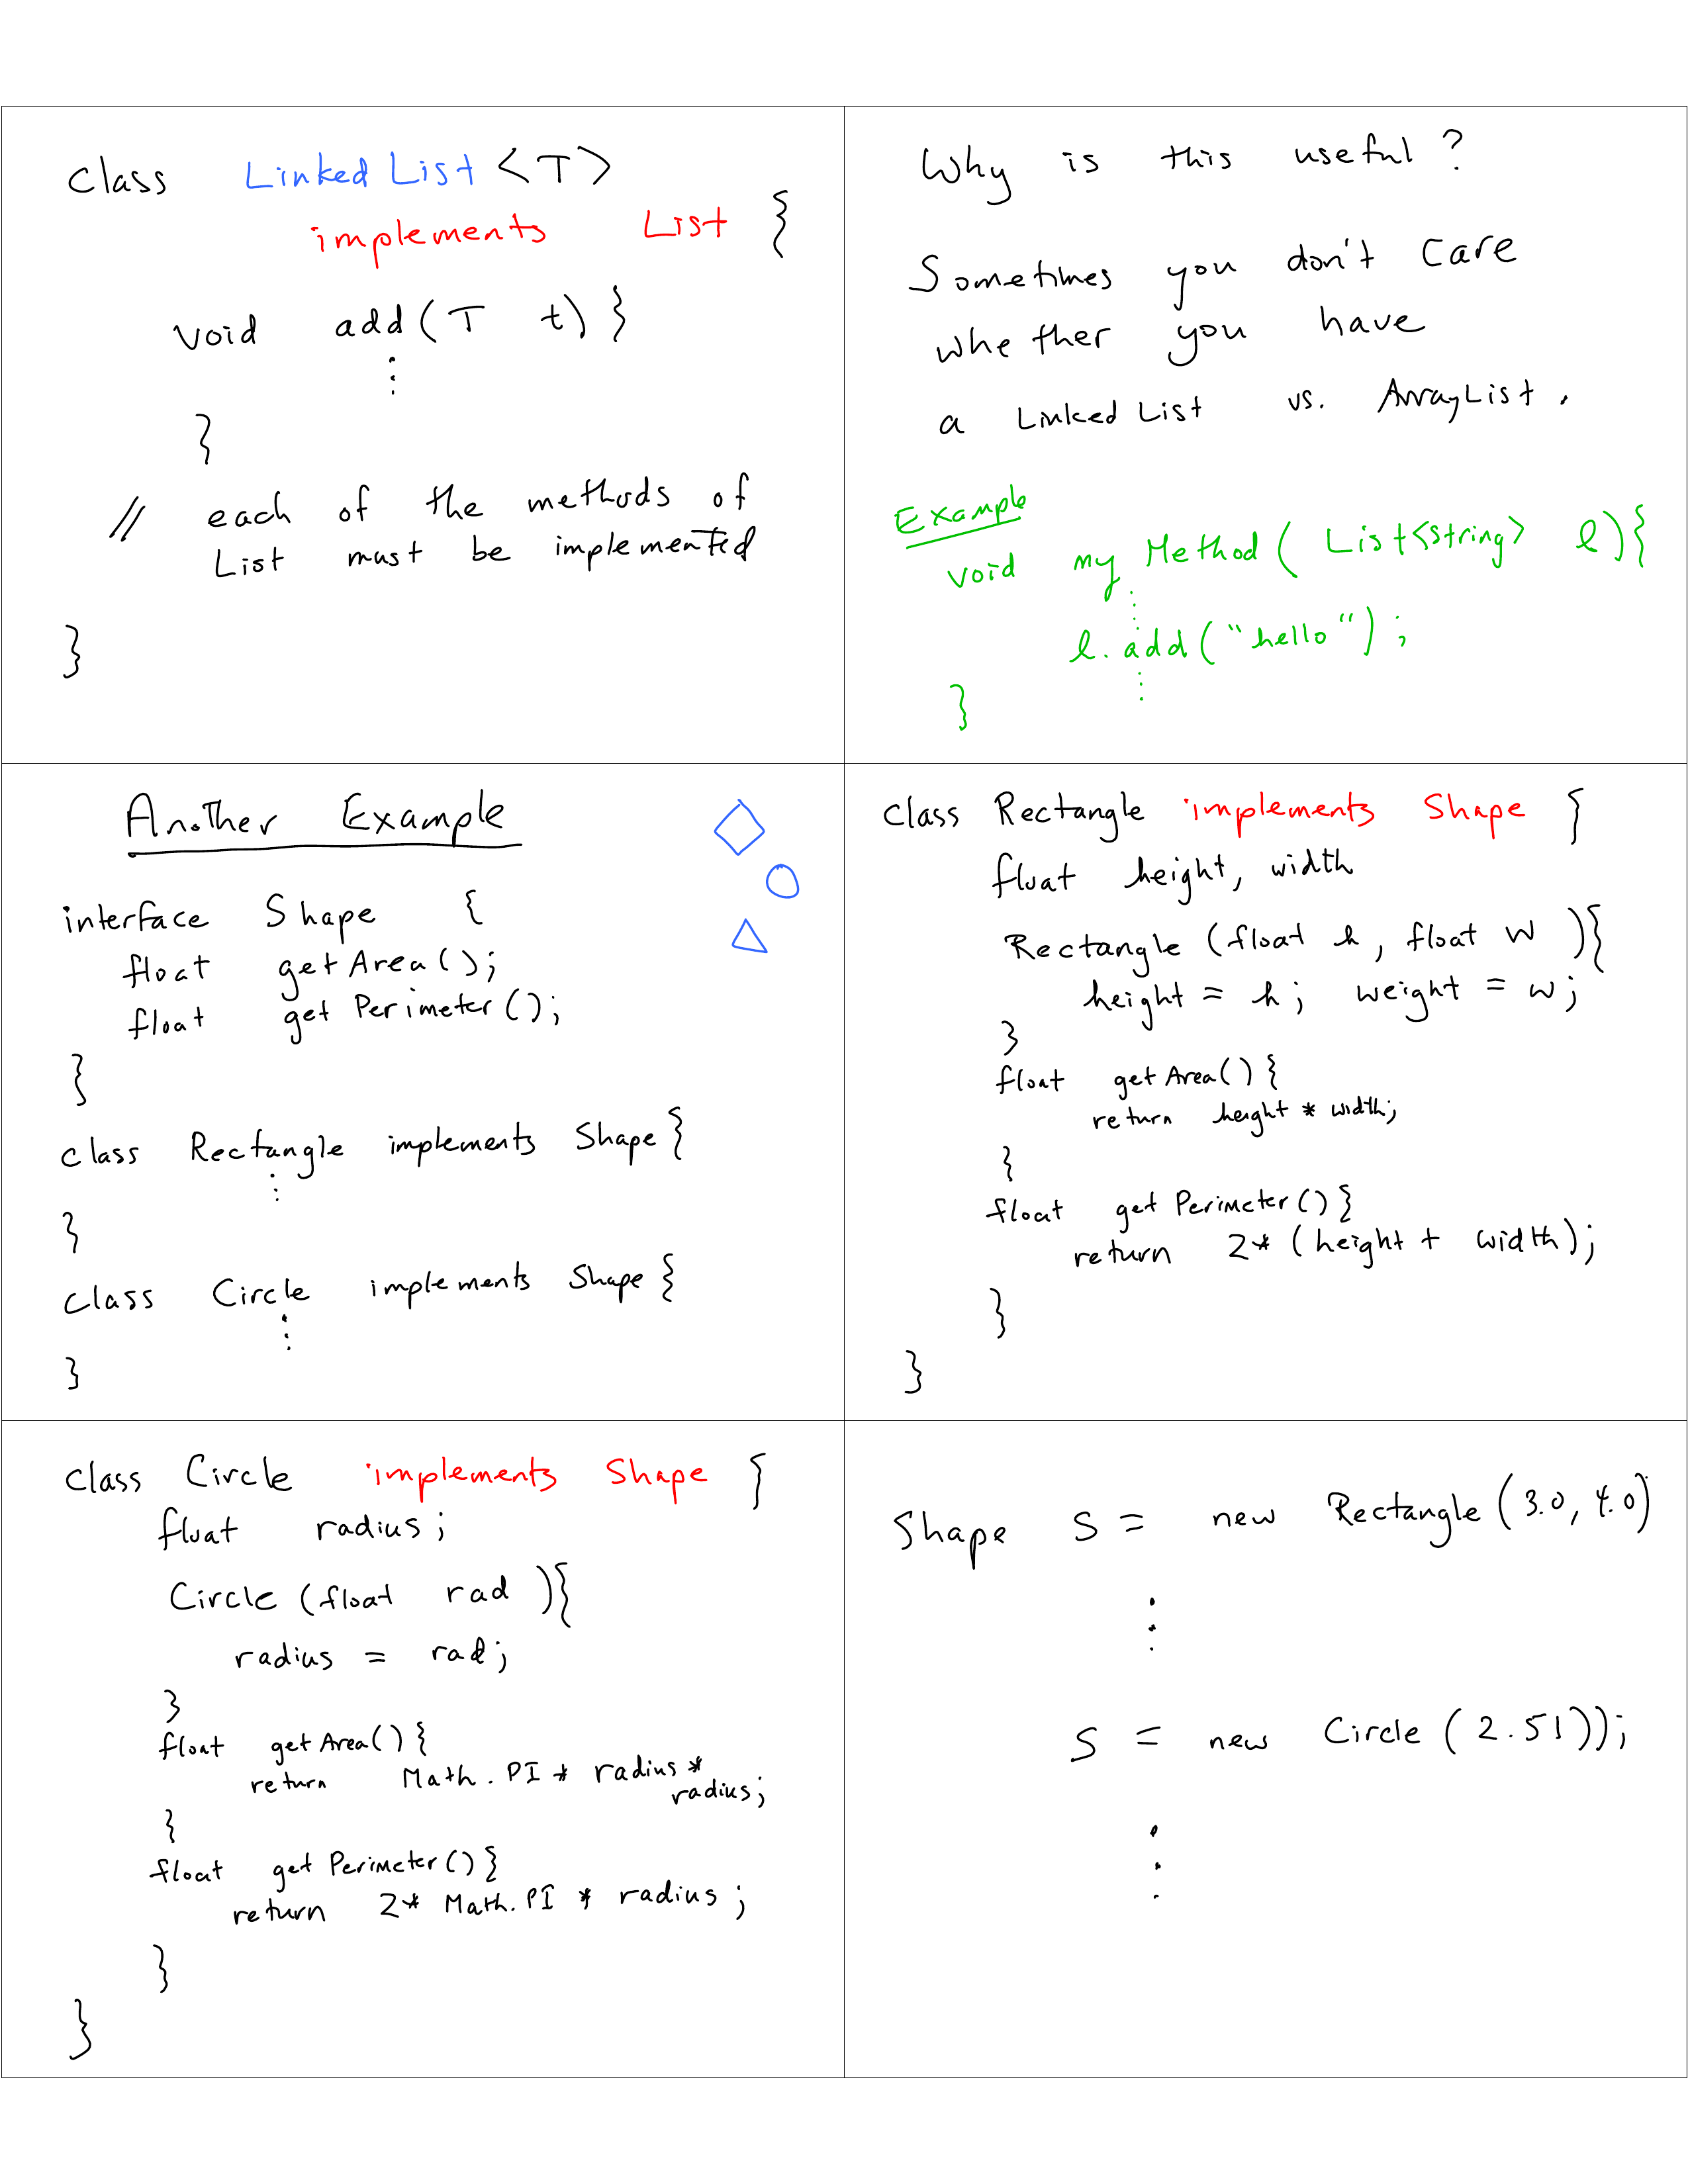 class LinkedList <T>
implements List {
void add(T t) }
⋮
}
// each of the methods of
List must be implemented
}
Why is this useful?
Sometimes you don't care
whether you have
a LinkedList vs. ArrayList.
Example
void myMethod( List<String> l){
⋮
l.add("hello");
⋮
}
Another Example
interface Shape {
float getArea();
float getPerimeter();
}
class Rectangle implements Shape {
⋮
}
class Circle implements Shape {
⋮
}
class Rectangle implements Shape {
float height, width
Rectangle (float h, float w ){
height = h; weight = w;
}
float getArea() {
return height * width;
}
float getPerimeter() {
return 2* (height + width);
}
}
class Circle implements Shape {
float radius;
Circle (float rad ){
radius = rad;
}
float getArea() {
return Math.PI * radius *
radius;
}
float getPerimeter() {
return 2* Math.PI * radius;
}
}
Shape s = new Rectangle (3.0, 4.0)
⋮
s = new Circle (2.51));
⋮